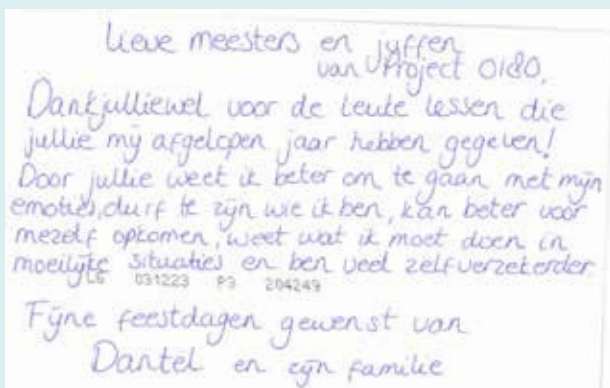 Lieve meesters en juffen
van Project 0180.
Dankjulliewel voor de leuke lessen die
jullie mij afgelopen jaar hebben gegeven!
Door jullie weet ik beter om te gaan met mijn
emoties, durf te zijn wie ik ben, kan beter voor
mezelf opkomen, weet wat ik moet doen in
moeilijke situaties en ben veel zelfverzekerder
L6 031223 P3 204249
Fijne feestdagen gewenst van
Daniel en zijn familie